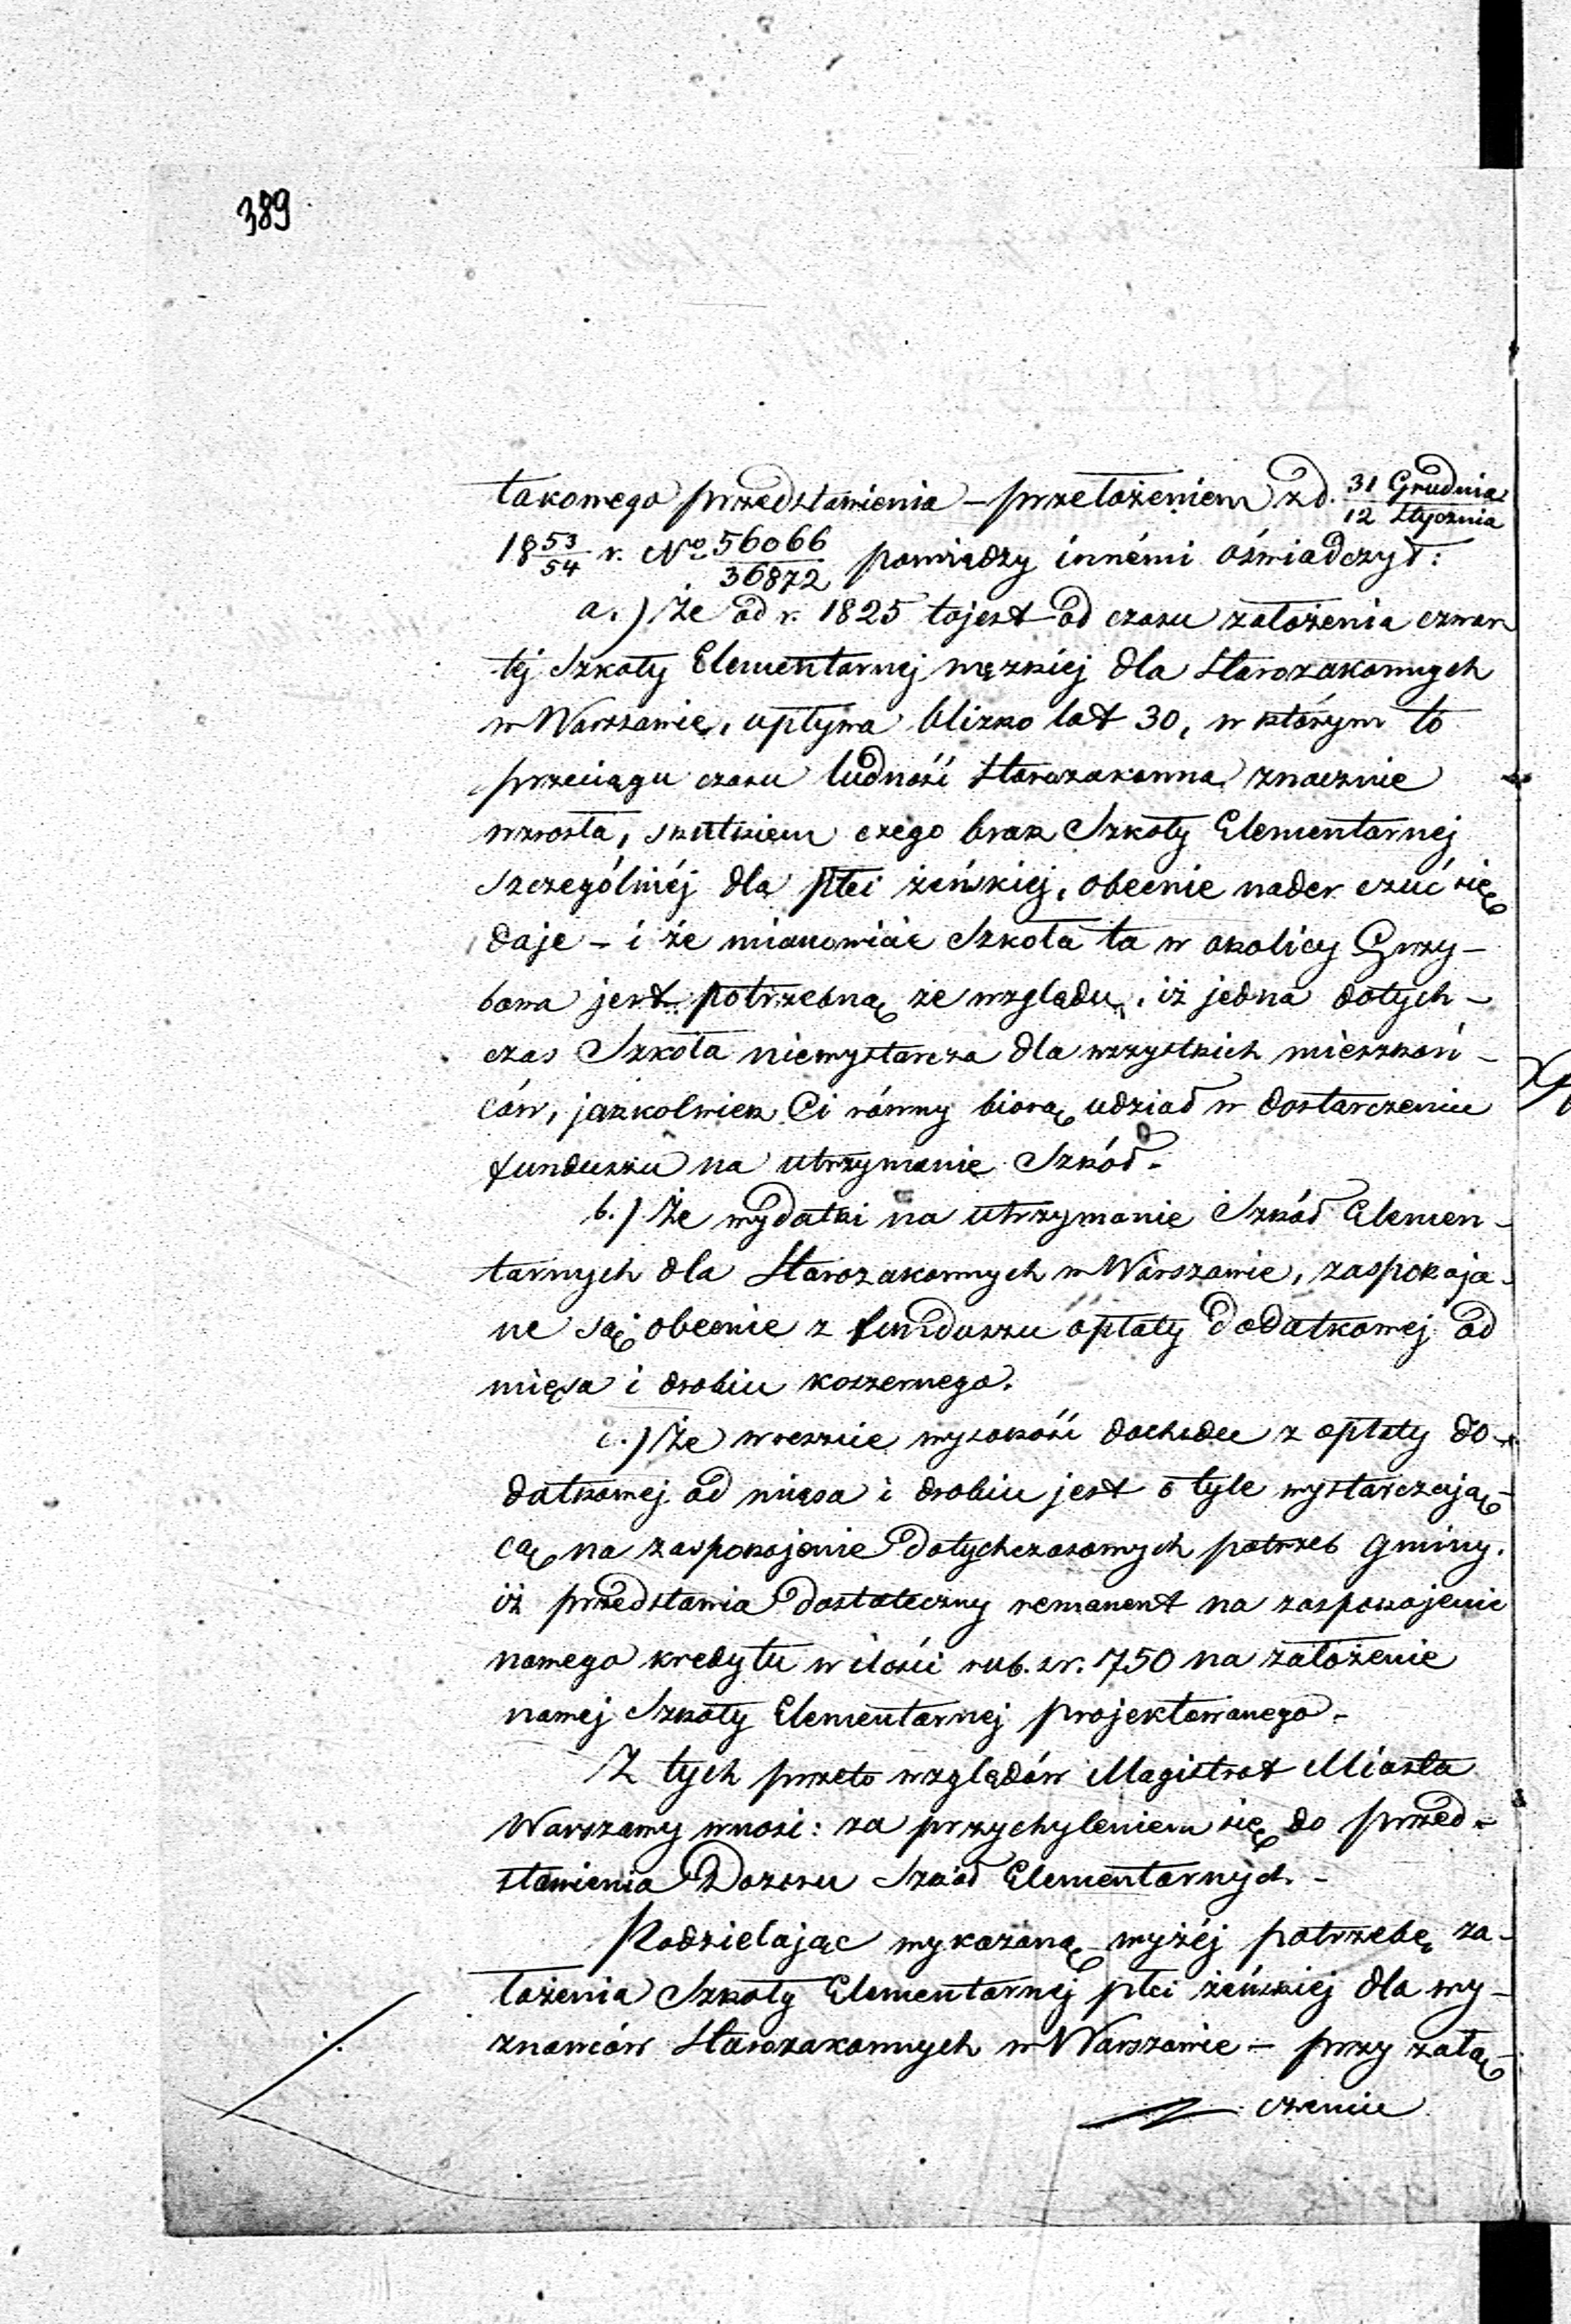 389
takowego przedstawienia – przełożeniem z d. 31 Grudnia / 12 Stycznia
18 53/54 r. No 56066/36872 pomiędzy innémi oświadczył:
a.) Że od r. 1825 tojest od czasu założenia czwar
tej Szkoły Elementarnej męzkiej dla Starozakonnych
w Warszawie, upływa blizko lat 30, w którym to
przeciągu czasu ludność Starozakonna znacznie
wzrosła, skutkiem czego brak Szkoły Elementarnej
szczególniéj dla płci żeńskiej, obecnie nader czuć się
daje – i że mianowicie Szkoła ta w okolicy Grzy–
bowa jest potrzebną ze względu, iż jedna dotych–
czas Szkoła niewystarcza dla wszystkich mieszkań–
ców, jakkolwiek Ci równy biorą udział w dostarczeniu
funduszu na utrzymanie Szkół.
b.) Że wydatki na utrzymanie Szkół Elemen–
tarnych dla Starozakonnych w Warszawie, zaspokaja–
ne są obecnie z funduszu opłaty dodatkowej od
mięsa i drobiu koszernego.
c.) Że wreszcie wysokość dochodu z opłaty do–
datkowej od mięsa i drobiu jest o tyle wystarczają–
cą na zaspokojenie dotychczasowych potrzeb Gminy,
iż przedstawia dostateczny remanent na zaspokojenie
nowego kredytu w ilości rub. sr. 750 na założenie
nowej Szkoły Elementarnej projektowanego –
Z tych przeto względów Magistrat Miasta
Warszawy wnosi: za przychyleniem się do przed–
stawienia Dozoru Szkół Elementarnych. –
Podzielając wykazaną wyżéj potrzebę za–
łożenia Szkoły Elementarnej płci żeńskiej dla wy–
znawców Starozakonnych w Warszawie – przy załą–
czeniu